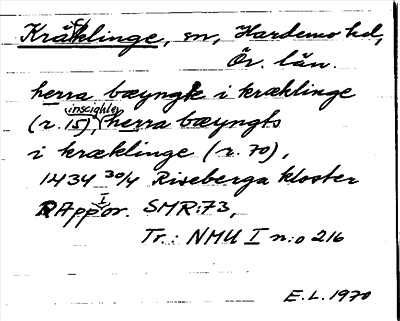 Kräcklinge, sn, Hardemo hd,
Ör. län.
herra bæyngt i kræklinge
(r. 15), herra bæyngts
i kræklinge (r. 70),
1434 30/4 Riseberga kloster
RAppor. SMR:73,
Tr.: NMU I n:o 216
E.L. 1970